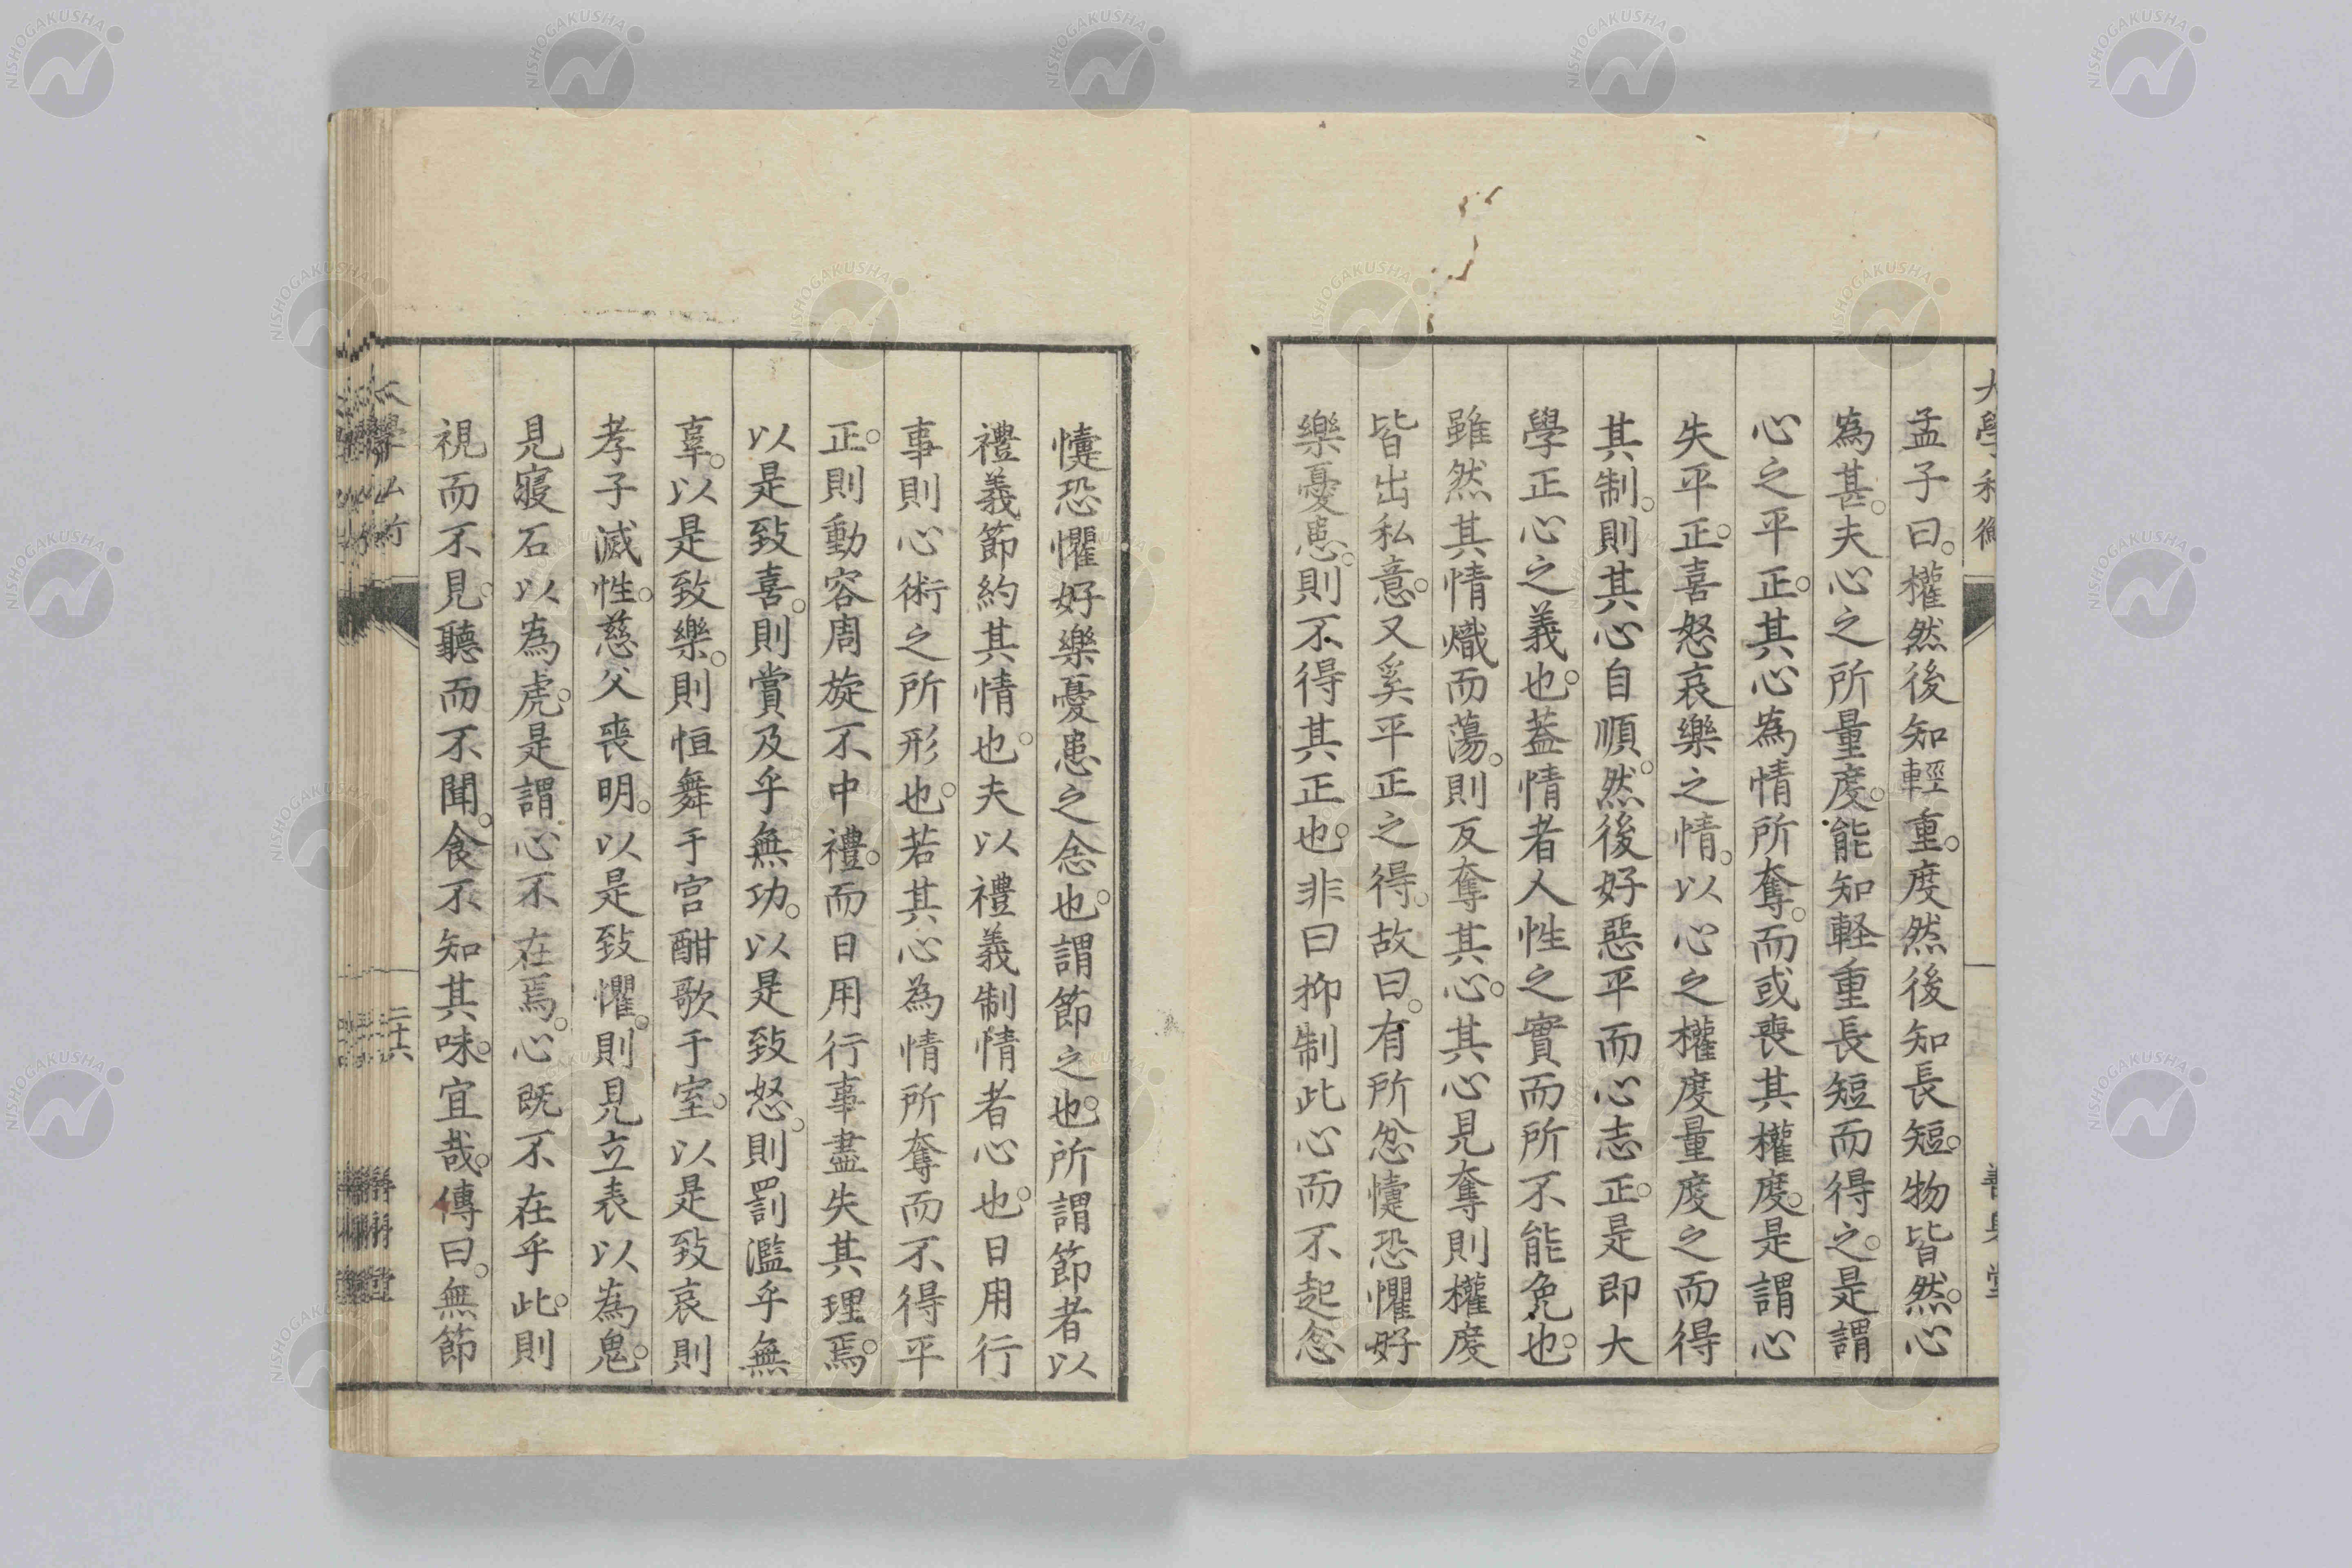 孟子曰。權然後知輕重。度然後知長短。物皆然。心
為甚。夫心之所量度。能知軽重長短而得之。是謂
心之平正。其心為情所奪。而或喪其權度。是謂心
失平正。喜怒哀樂之情。以心之權度量度之而得
其制。則其心自順。然後好惡平而心志正。是即大
學正心之義也。蓋情者人性之實而所不能免也。
雖然其情熾而蕩。則反奪其心。其心見奪則權度
皆出私意。又奚平正之得。故曰。有所忿懥恐懼好
樂憂患。則不得其正也。非曰抑制此心而不起念
懥恐懼好樂憂患之念也。謂節之也。所謂節者以
禮義節約其情也。夫以禮義制情者心也。日用行
事則心術之所形也。若其心為情所奪而不得平
正。則動容周旋不中禮。而日用行事盡失其理焉。
以是致喜。則賞及乎無功。以是致怒。則罰濫乎無
辜。以是致樂。則恒舞于宮酣歌于室。以是致哀則
孝子滅性。慈父喪明。以是致懼。則見立表以為鬼。
見寢石以為虎。是謂心不在焉。心既不在乎此。則
視而不見。聽而不聞。食不知其味。宜哉。傳曰。無節
二十六
NISHOGAKUSHA